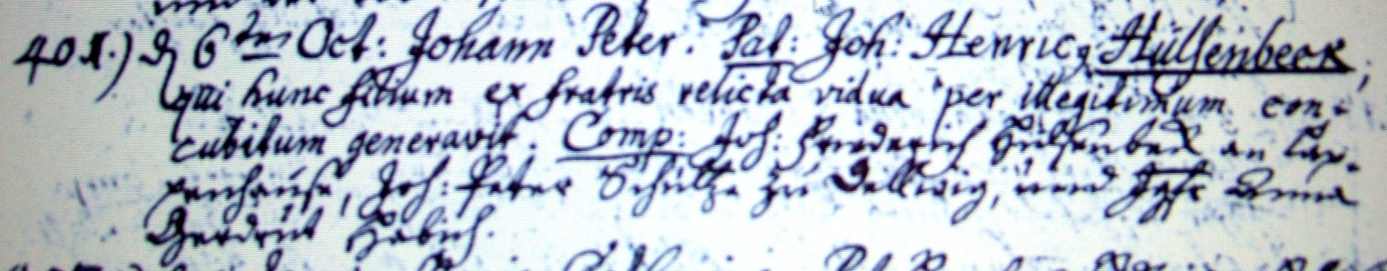 401.) d 6ten Oct: Johann Peter. Pat: Joh: Henricg Hülsenbeck,
qui hunc filium ex fratris relicta vidua per illegitimum con-
cubitum generavit. Comp: Joh: Friederich Hülsenbeck an Lap-
penhause, Joh: Peter Schültze zu Dellwig, und Jgfr Anna
Gerdrut Habich.